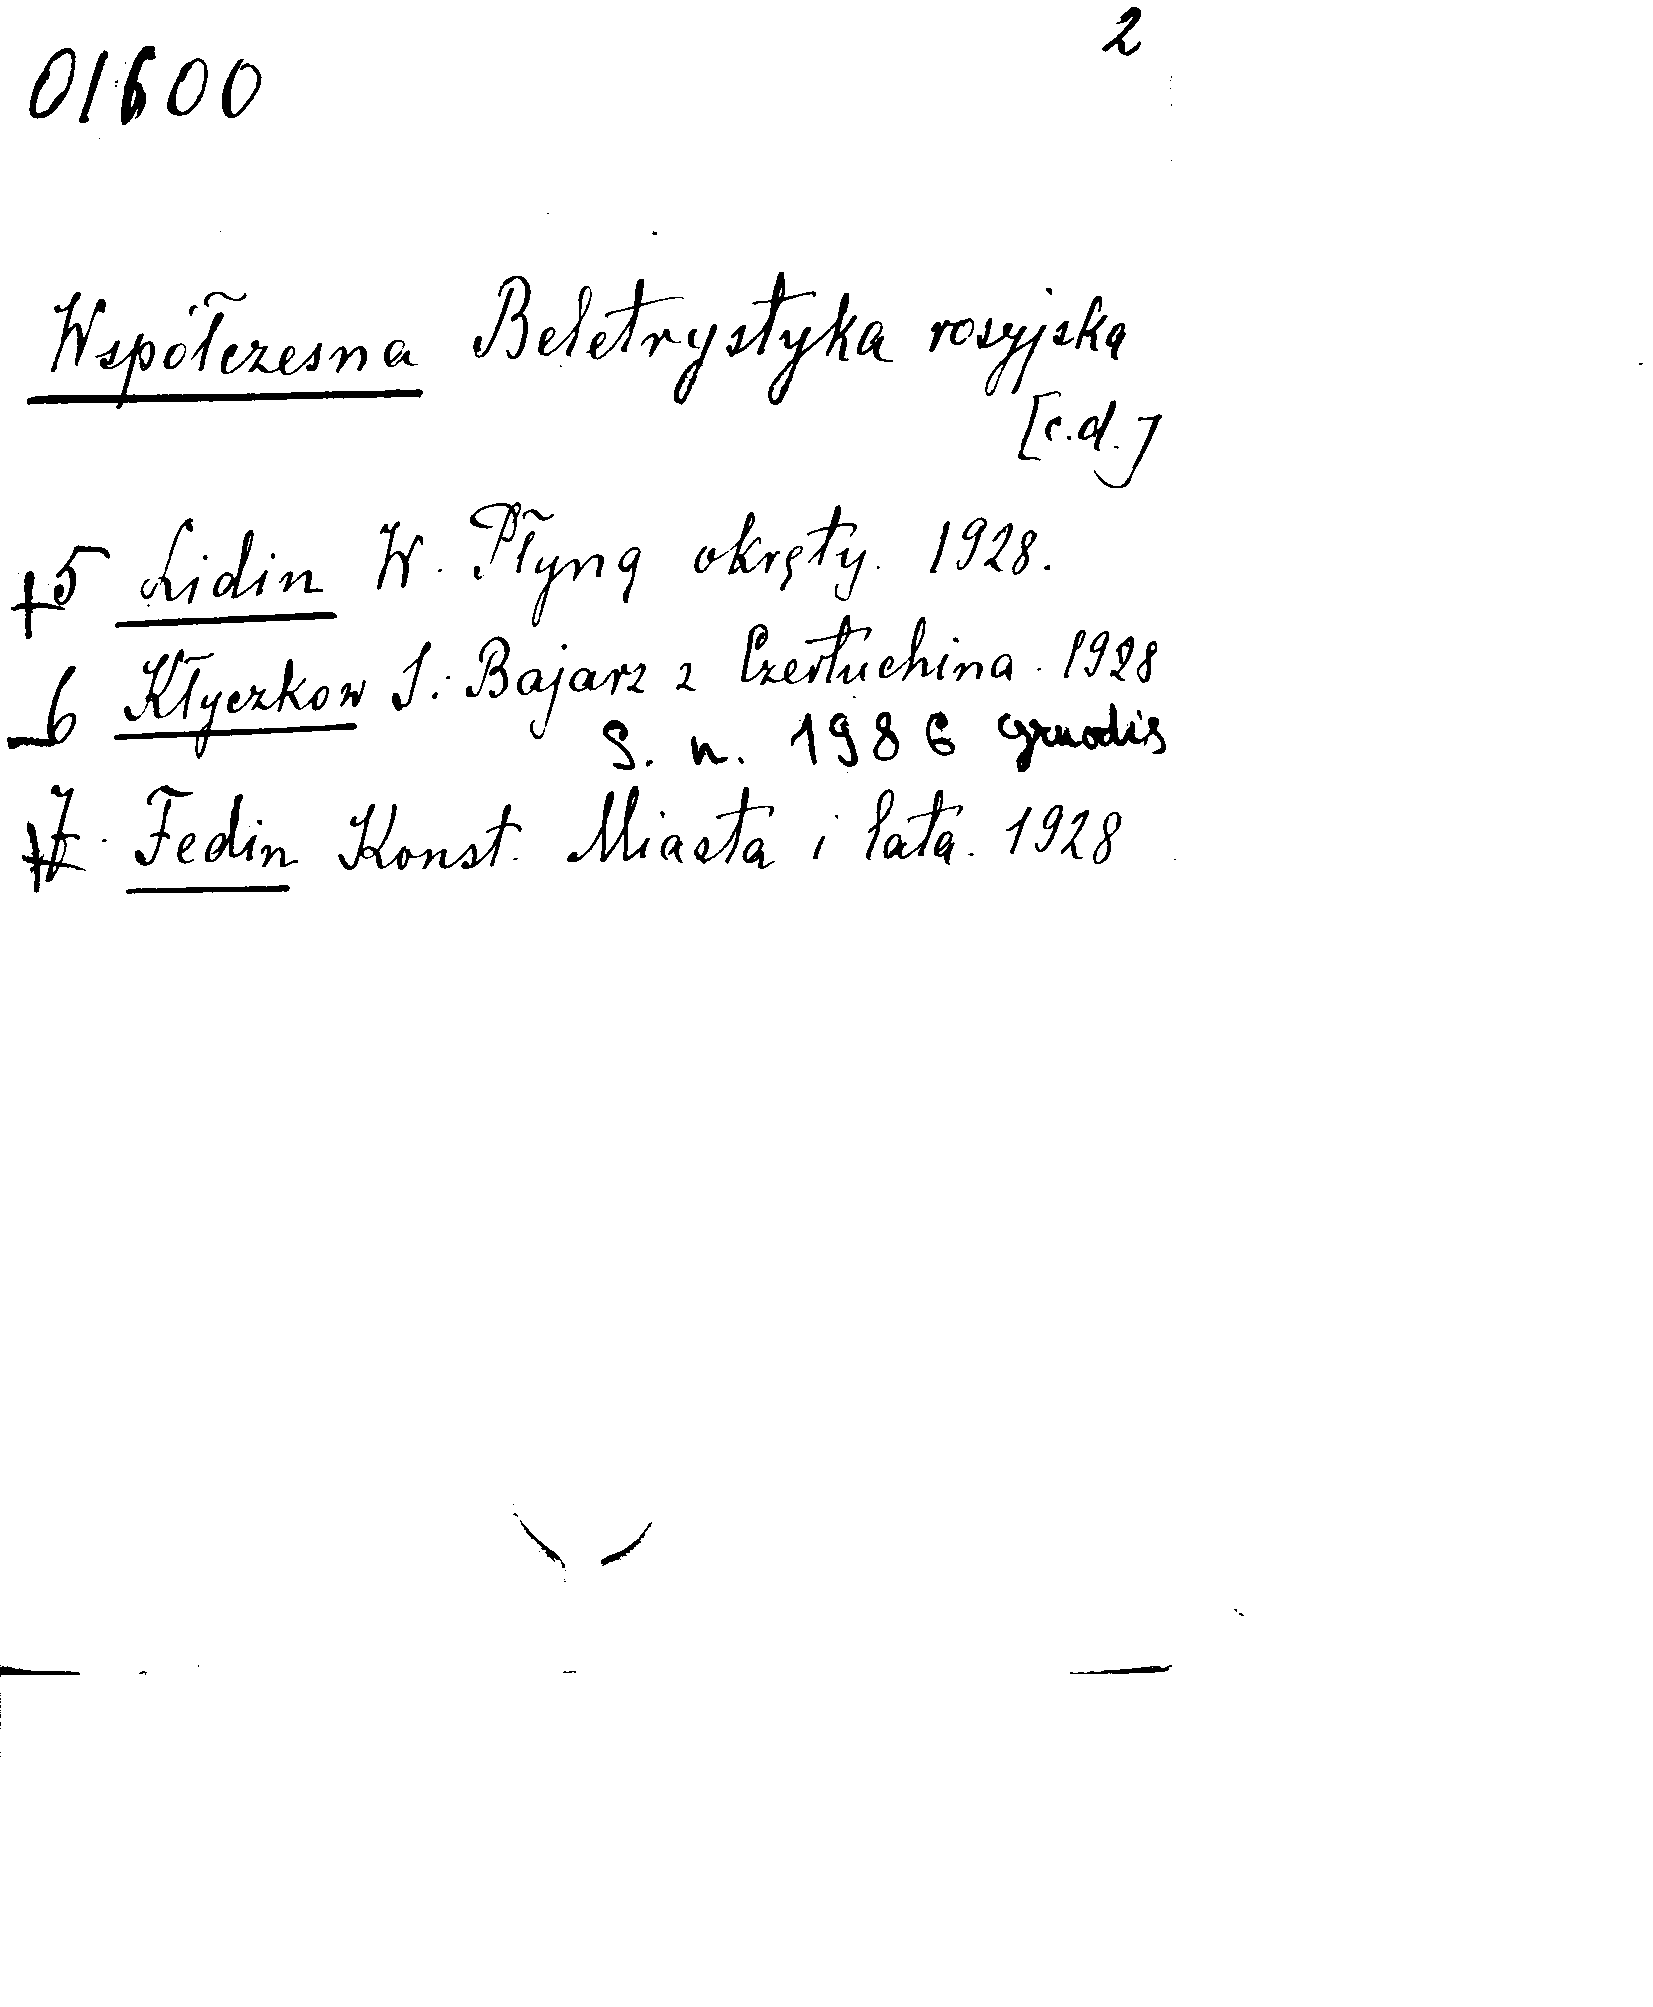 2
01600
Współczesna Beletrystyka rosyjska
[c.d.]
+5 Lidin W. Płyną okręty. 1928.
-6 Kłyczkow S. Bajarz z Czertuchina. 1928
S. n. 1986 grudzień
+7. Fedin Konst. Miasta i lata. 1928